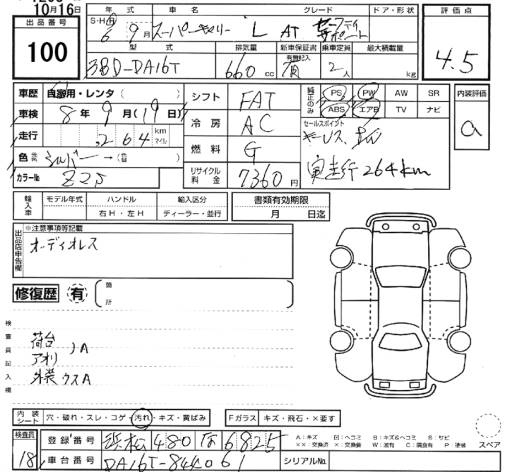 10月16日
出品番号
100
年式 車名 グレード ドア・形状
S・H・R 6年9月 スーパーキャリー L AT セーフティサポート
型式 排気量 新車保証書 乗車定員 最大積載量
3BD-DA16T 660cc 有 2人 kg
評価点
4.5
車歴 自家用・レンタ( )
車検 8年9月(19日)
走行 264 km マイル
色 シルバー (色替)
カラーNo. Z2S
シフト FAT
冷房 AC
燃料 G
リサイクル料金 7360円
純正のみ
PS PW AW SR
ABS エアB TV ナビ
セールスポイント
キーレス
実走行264km
内装評価
a
輸入車 モデル年式 ハンドル 輸入区分
右H・左H ディーラー・並行
書類有効期限
月 日迄
出品店申告欄
※注意事項等記載
オーディオレス
修復歴 有
箇所
検査員記入欄
荷台
アオリ A
外装ウスA
内装シート 穴・破れ・スレ・コゲ・汚れ・キズ・黄ばみ
Fガラス キズ・飛石・×要す
A:キズ U:ヘコミ B:キズ&ヘコミ S:サビ
××:交換済 ×:要交換 W:波有 C:腐食有 P:塗装
スペア
検査員
18
登録番号 浜松 480 6825
車台番号 DA16T-844061
シリアルNo.